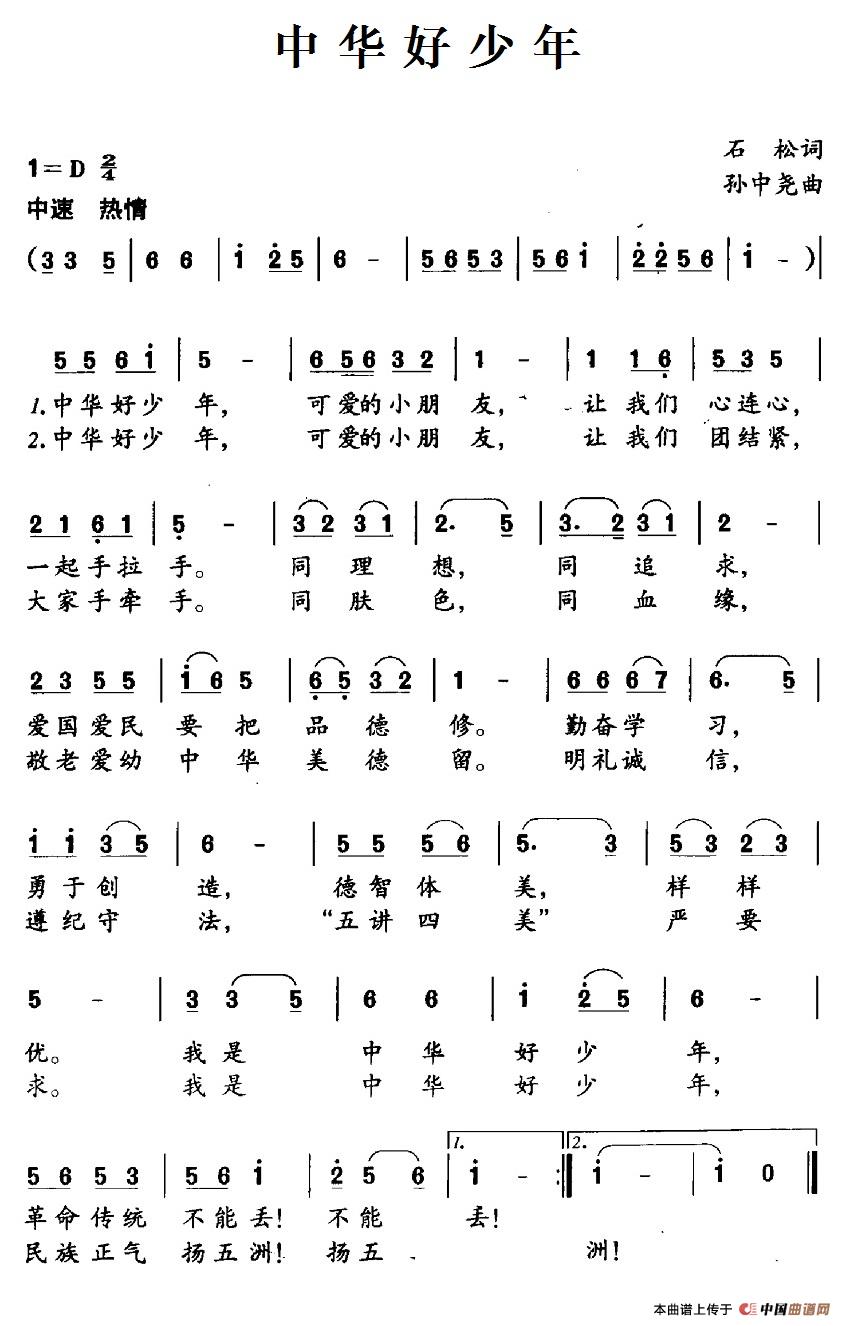 中华好少年
石 松词
1=D 2/4
孙中尧曲
中速 热情
(3 3 5 | 6 6 | i 2̇ 5 | 6 - | 5 6 5 3 | 5 6 i | 2̇ 2̇ 5 6 | i - )|
5 5 6 i | 5 - | 6 5 6 3 2 | 1 - | 1 1 6̣ | 5 3 5 |
1.中华好少 年, 可爱的小朋 友, 让 我们 心连心,
2.中华好少 年, 可爱的小朋 友, 让 我们 团结紧,
2 1 6̣ 1 | 5̣ - | 3 2 3 1 | 2. 5 | 3. 2 3 1 | 2 - |
一起手拉 手。 同 理 想, 同 追 求,
大家手牵 手。 同 肤 色, 同 血 缘,
2 3 5 5 | i 6 5 | 6̣ 5̣ 3 2 | 1 - | 6 6 6 7 | 6. 5 |
爱国爱民 要 把 品 德 修。 勤奋学 习,
敬老爱幼 中 华 美 德 留。 明礼诚 信,
i i 3 5 | 6 - | 5 5 5 6 | 5. 3 | 5 3 2 3 |
勇于创 造, 德智体 美, 样 样
遵纪守 法, “五讲四 美” 严 要
5 - | 3 3 5 | 6 6 | i 2̇ 5 | 6 - |
优。 我是 中 华 好 少 年,
求。 我是 中 华 好 少 年,
5 6 5 3 | 5 6 i | 2̇ 5 6 | 1. i - :| 2. i - | i 0 |
革命传统 不能丢! 不能 丢!
民族正气 扬五洲! 扬五 洲!
本曲谱上传于 中国曲谱网